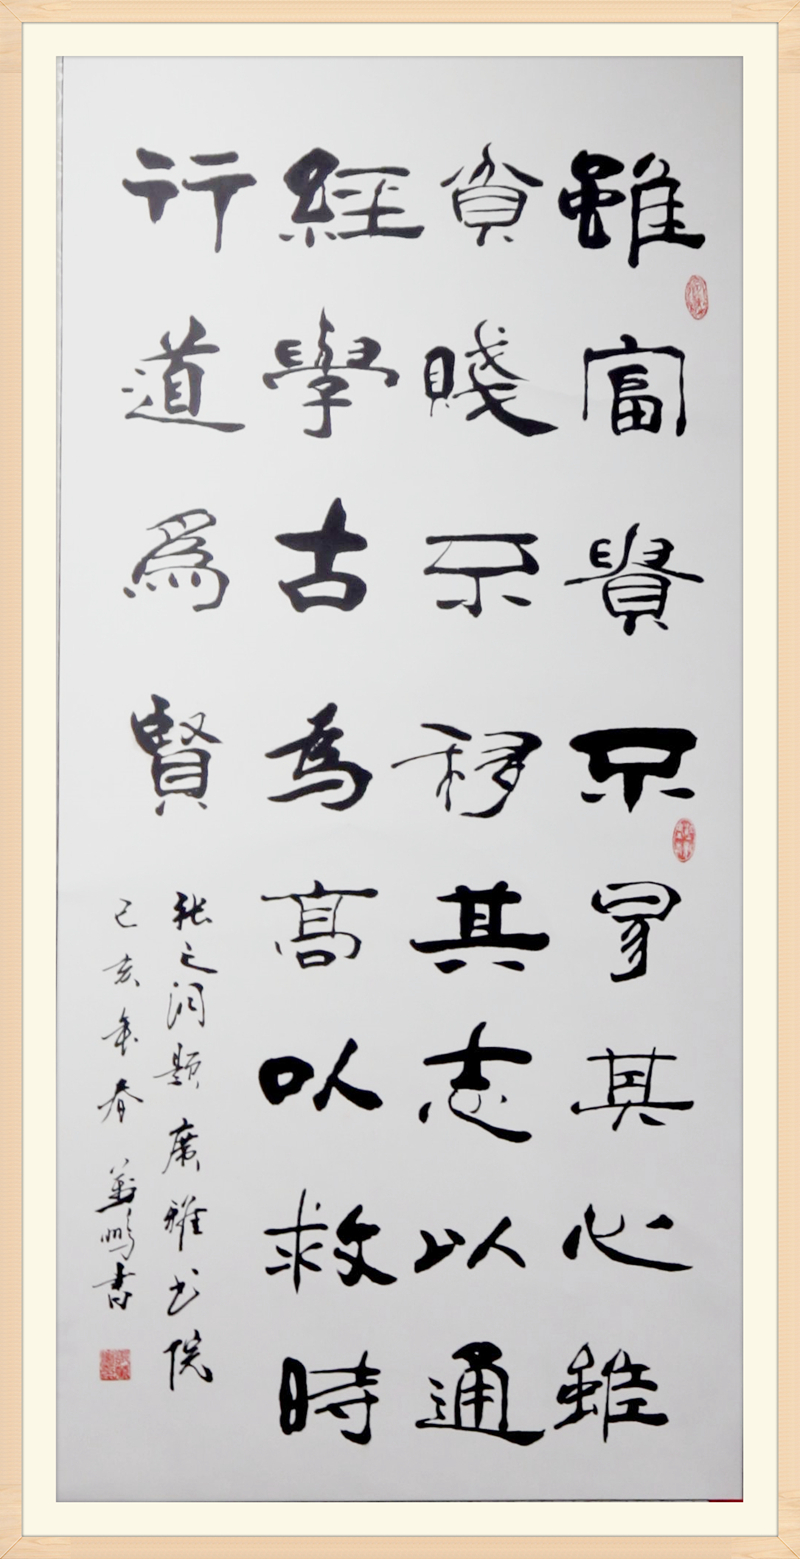 雖富貴不易其心雖
貧賤不移其志以通
經學古為高以救時
行道爲賢
张之洞题廣雅书院
己亥年春 鵬書